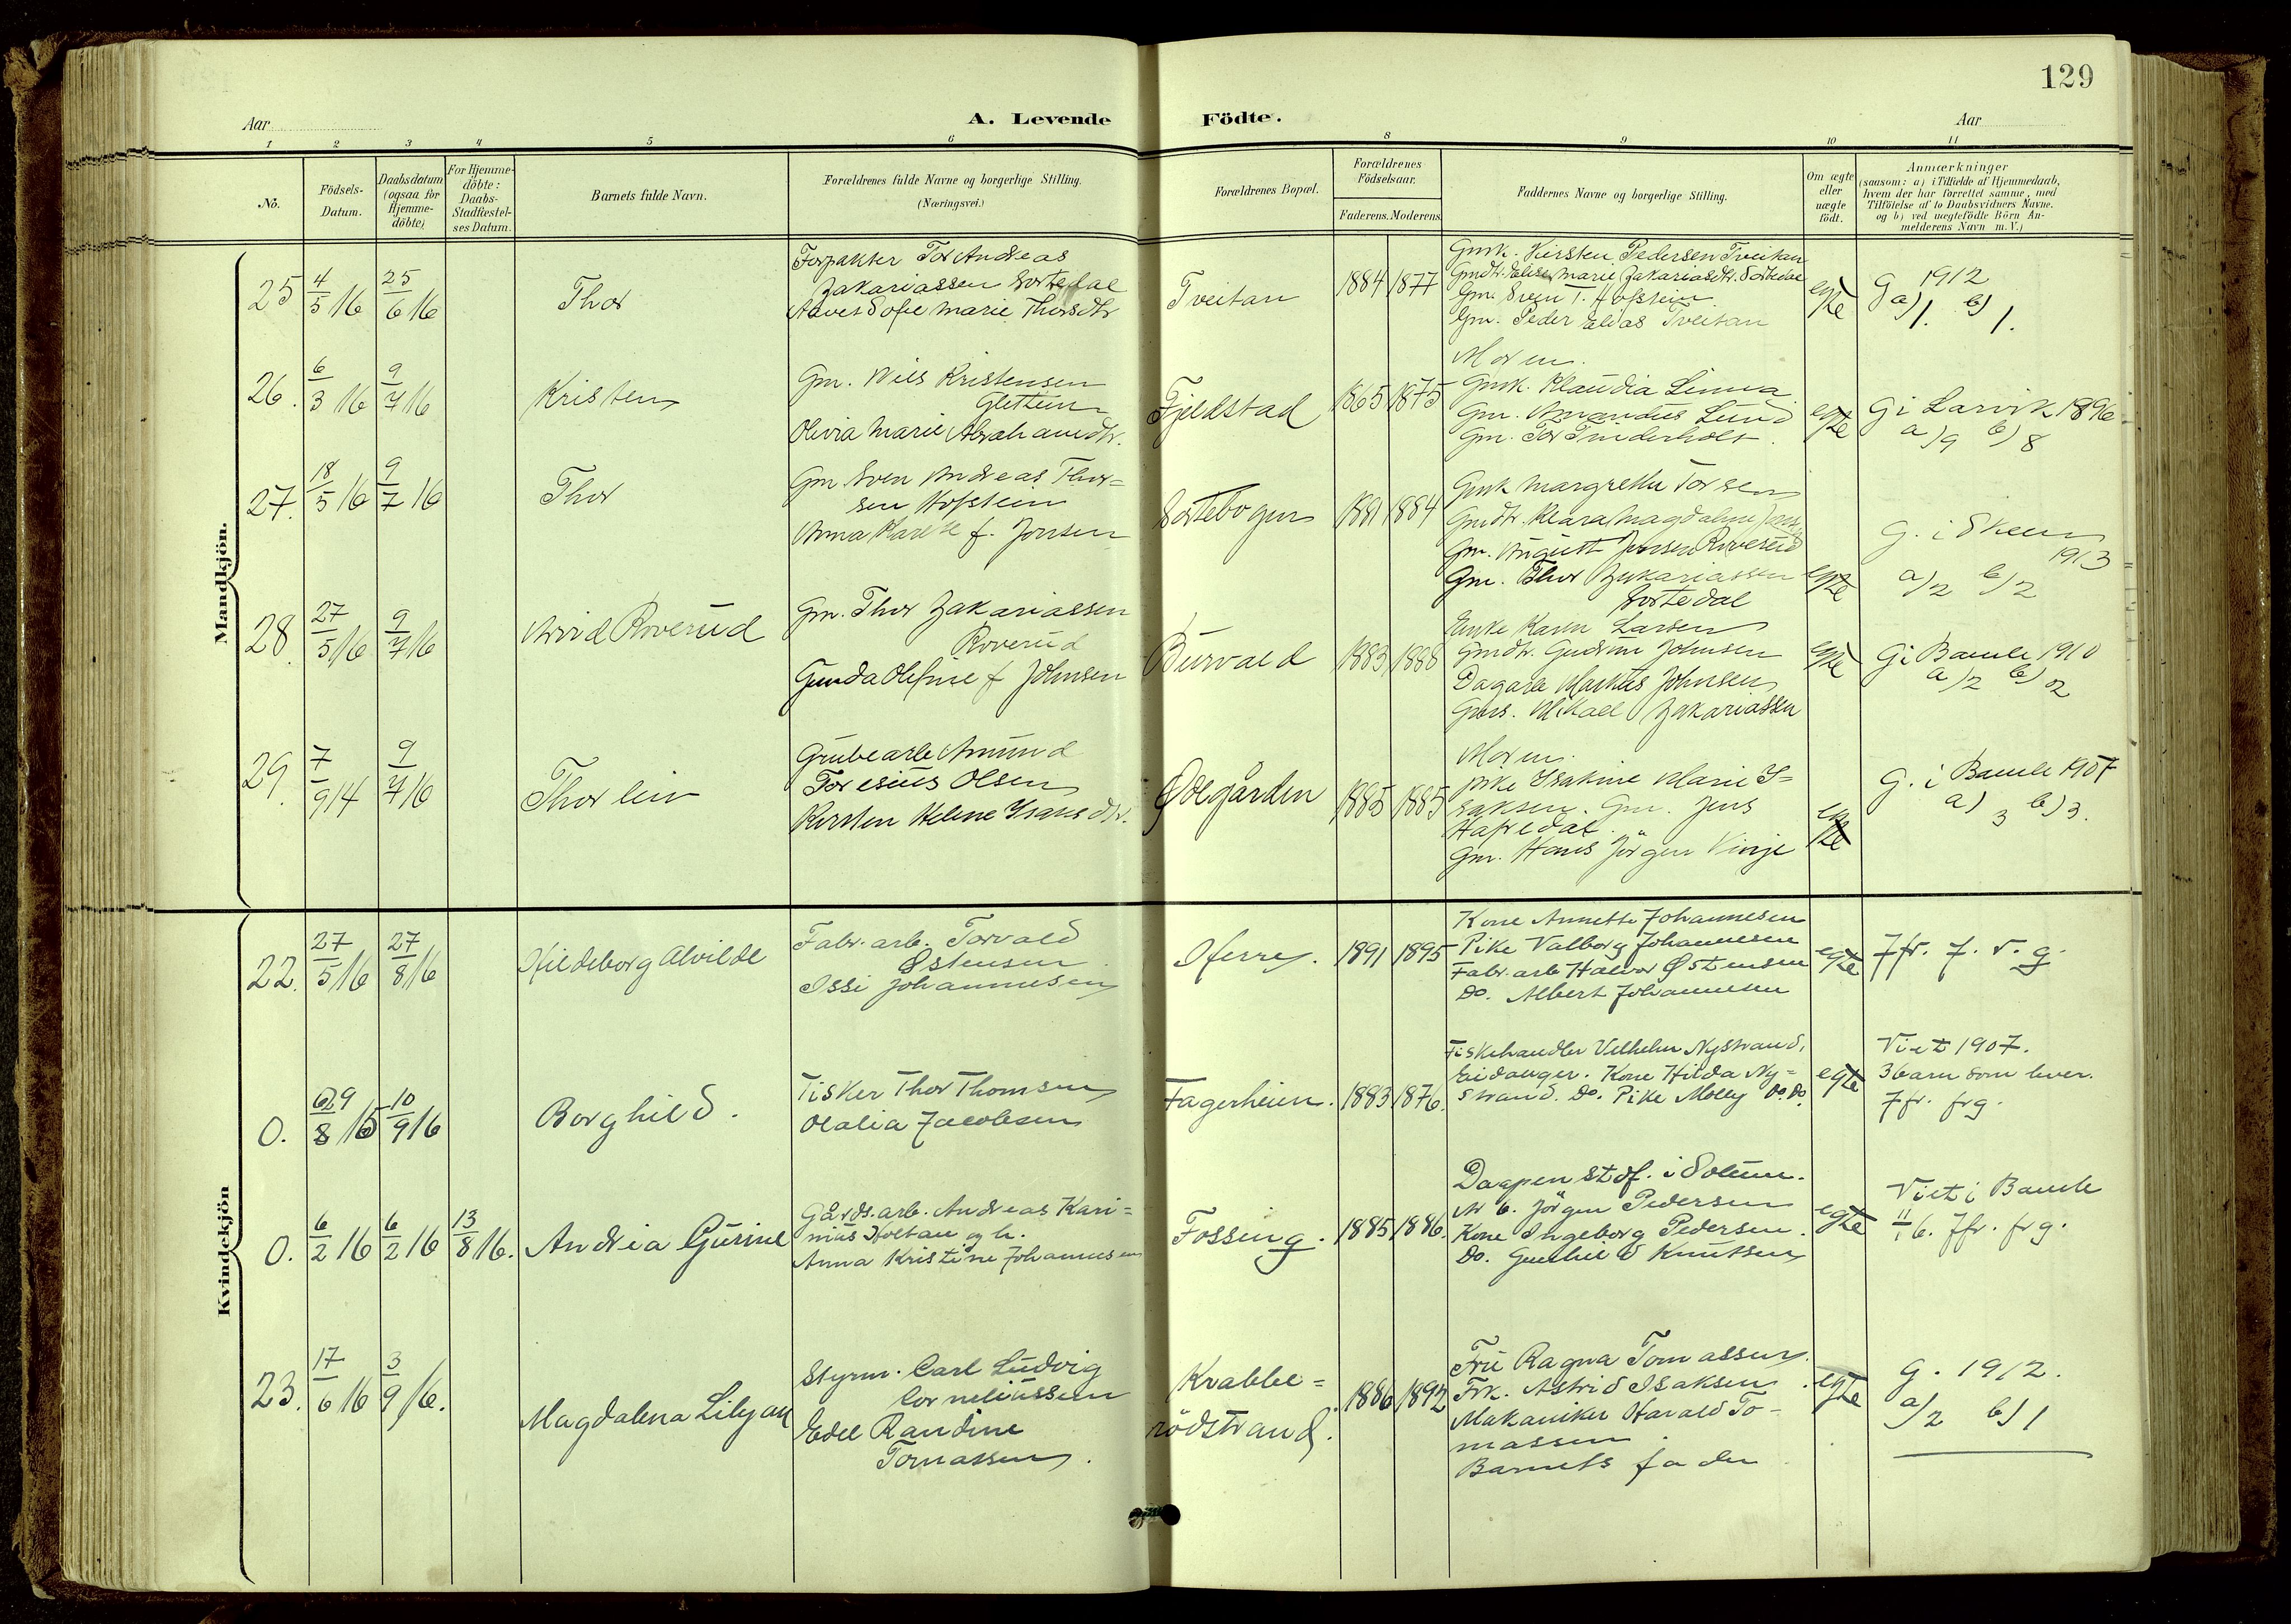 129
Aar
A. Levende Födte.
Aar
1 2 3 4 5 6 8 9 10 11
No.
Födsels-
Datum.
Daabsdatum
(ogsaa for
Hjemme-
döbte)
For Hjemme-
döbte:
Daabs-
Stadfæstel-
ses Datum.
Barnets fulde Navn.
Forældrenes fulde Navne og borgerlige Stilling.
(Næringsvei.)
Forældrenes Bopæl.
Forældrenes
Födselsaar.
Faderens. Moderens.
Faddernes Navne og borgerlige Stilling.
Om ægte
eller
uægte
født.
Anmærkninger
(saasom: a) i Tilfælde af Hjemmedaab,
hvem der har forrettet samme, med
Tilföielse af to Daabsvidners Navne.
og b) ved uægtefødte Börn An-
melderens Navn m. V.)
Mandkjön.
25 4/5 16 25/6 16
Thor
Forpakter Tor Andreas
Zakariassen Sortedal
Sofie Marie Thorsdtr
Tveitan
1884 1877
Gmk. Kirsten Pedersen Tveitan
Gmdtr. Elise Marie Zakariasdtr. Sortedal
Gm. Sven T. Hofstein
Gm. Peder Elias Tveitan
egte
G 1912
a) 1. b) 1.
26. 6/3 16 9/7 16
Kristen
Gm. Nils Kristensen
Olivia Marie Abrahamsdtr.
Fjeldstad
1865 1875
Moren.
Gmk. Klaudia Linna
Gm. Amandus Lund
Gm. Tor
egte
G i Larvik 1896
a) 9 b) 8
27. 18/5 16 9/7 16
Thor
Gm Sven Andreas Thor=
sen Hofstein
Anna Karete f. Jonsen
Sortebogen
1881 1884
Gmk Margrethe Torsen
Gmdtr. Klara Magdalene
Gm. August Jensen Roverud
Gm. Thor Zakariassen
Sortedal
egte
G. i Skeen
1913
a) 2 b) 2
28. 27/5 16 9/7 16
Arvid Roverud
Gm. Thor Zakariassen
Roverud
Gunda Olefine f Johnsen
Burvald
1883 1888
Enke Karen Larsen
Gmdtr. Gudrun Johnsen
Dagarb Markus Johnsen
Mikael Zakariassen
egte
G i Bamle 1910
a) 2 b) 2
29. 7/9 14 9/7 16
Thorleiv
Grubearb Amund
Toresius Olsen
Kirsten Helene Isaksdtr.
Ødegården
1885 1885
Moren.
pike Isakine Marie I=
saksen. Gm. Jens
Hafredal.
Gm. Hans Jörgen Vinje
egte
G. i Bamle 1907
a) 3 b) 3.
Kvindekjön
22. 27/5 16 27/8 16
Hildeborg Alvilde
Fabr. arb. Torvald
Østensen
Issi Johannesen
Herre.
1891 1895
Kone Annette Johannesen
Pike Valborg Johannesen
Fabr. arb Halvor Østensen
Do. Albert Johannesen
egte
7fr. f. v. g.
0. 29/8 15 10/9 16
Borghild.
Fisker Thor Thomsen
Olalia Jacobsen
Fagerheim.
1883 1876.
Fiskehandler Vilhelm Nystrand,
Eidanger. Kone Hilda Ny=
strand. Do. Pike Molly Do. Do.
egte
Viet 1907.
3 barn som lever.
7fr. frg.
0. 6/2 16 6/2 16 13/8 16.
Andrea Gurine
Gårds. arb. Andreas Kari=
nius Holtan og h.
Anna Kristine Johannesen
Fossing.
1885 1886.
Daapen stdf. i Solum.
Jörgen Pedersen
Kone Ingeborg Pedersen.
Do. Gunhild Knutsen
egte
Viet i Bamle
11/1 6. 7fr. frg.
23. 17/6 16 3/9 16.
Magdalena Lilyan
Styrm. Carl Ludvig
Corneliussen
Edel Randine
Tomassen.
Krabbe=
rödstrand.
1886 1892
Fru Ragna Tomassen.
Frk. Astrid Isaksen.
Makaniker Harald To=
massen.
Barnets fader
egte
G. 1912.
a) 2 b) 1